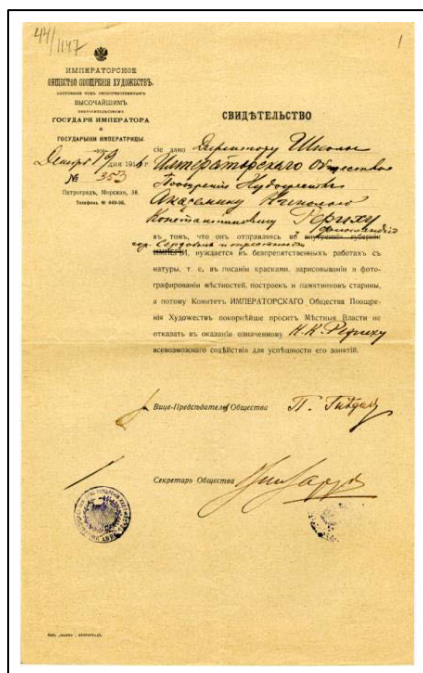 44/1147
1
ИМПЕРАТОРСКОЕ
ОБЩЕСТВО ПООЩРЕНІЯ ХУДОЖЕСТВЪ,
ВЫСОЧАЙШИМЪ
ГОСУДАРЯ ИМПЕРАТОРА
и
ГОСУДАРЫНИ ИМПЕРАТРИЦЫ.
Декабря 19 дня 191 г.
№ 353
Петроградъ, Морская, 38.
СВИДѢТЕЛЬСТВО
сіе дано Директору Школы
Императорскаго Общества
Поощренія Художествъ
Академику Николаю
Константиновичу Рериху
въ томъ, что онъ отправляясь во внутреннія губерніи Финляндію
гор. Сердоболь и окрестности
ИМПЕРІИ, нуждается въ безпрепятственныхъ работахъ съ
натуры, т. е. въ писаніи красками, зарисовываніи и фото-
графированіи мѣстностей, построекъ и памятниковъ старины,
а потому Комитетъ ИМПЕРАТОРСКАГО Общества Поощре-
нія Художествъ покорнѣйше проситъ Мѣстныя Власти не
отказать въ оказаніи означенному Н. К. Рериху
всевозможнаго содѣйствія для успѣшности его занятій.
Вице-Предсѣдатель Общества
Секретарь Общества